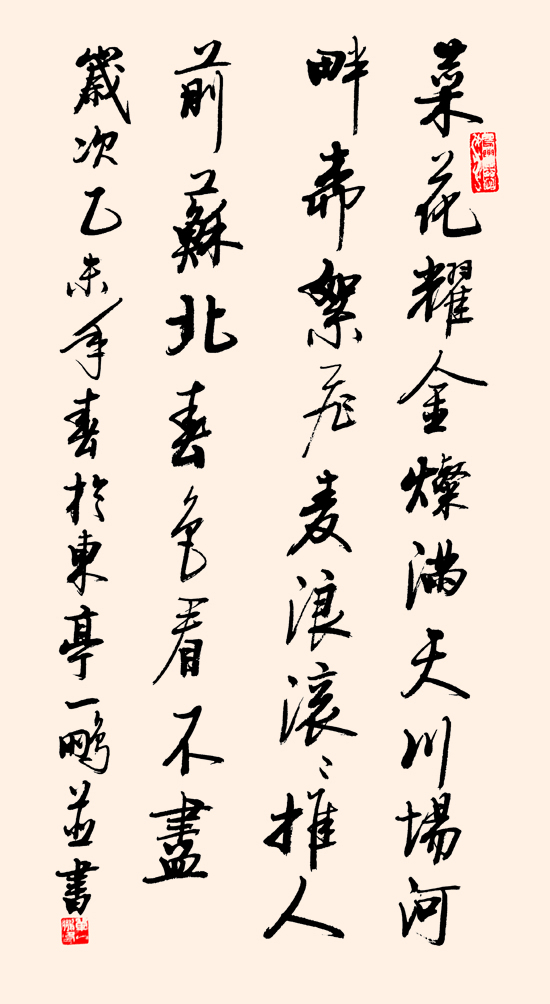 菜花耀金燦滿天川場河
畔絮飛麥浪滾〻推人
前蘇北春色看不盡
歲次乙未年春於東亭一鵬並書